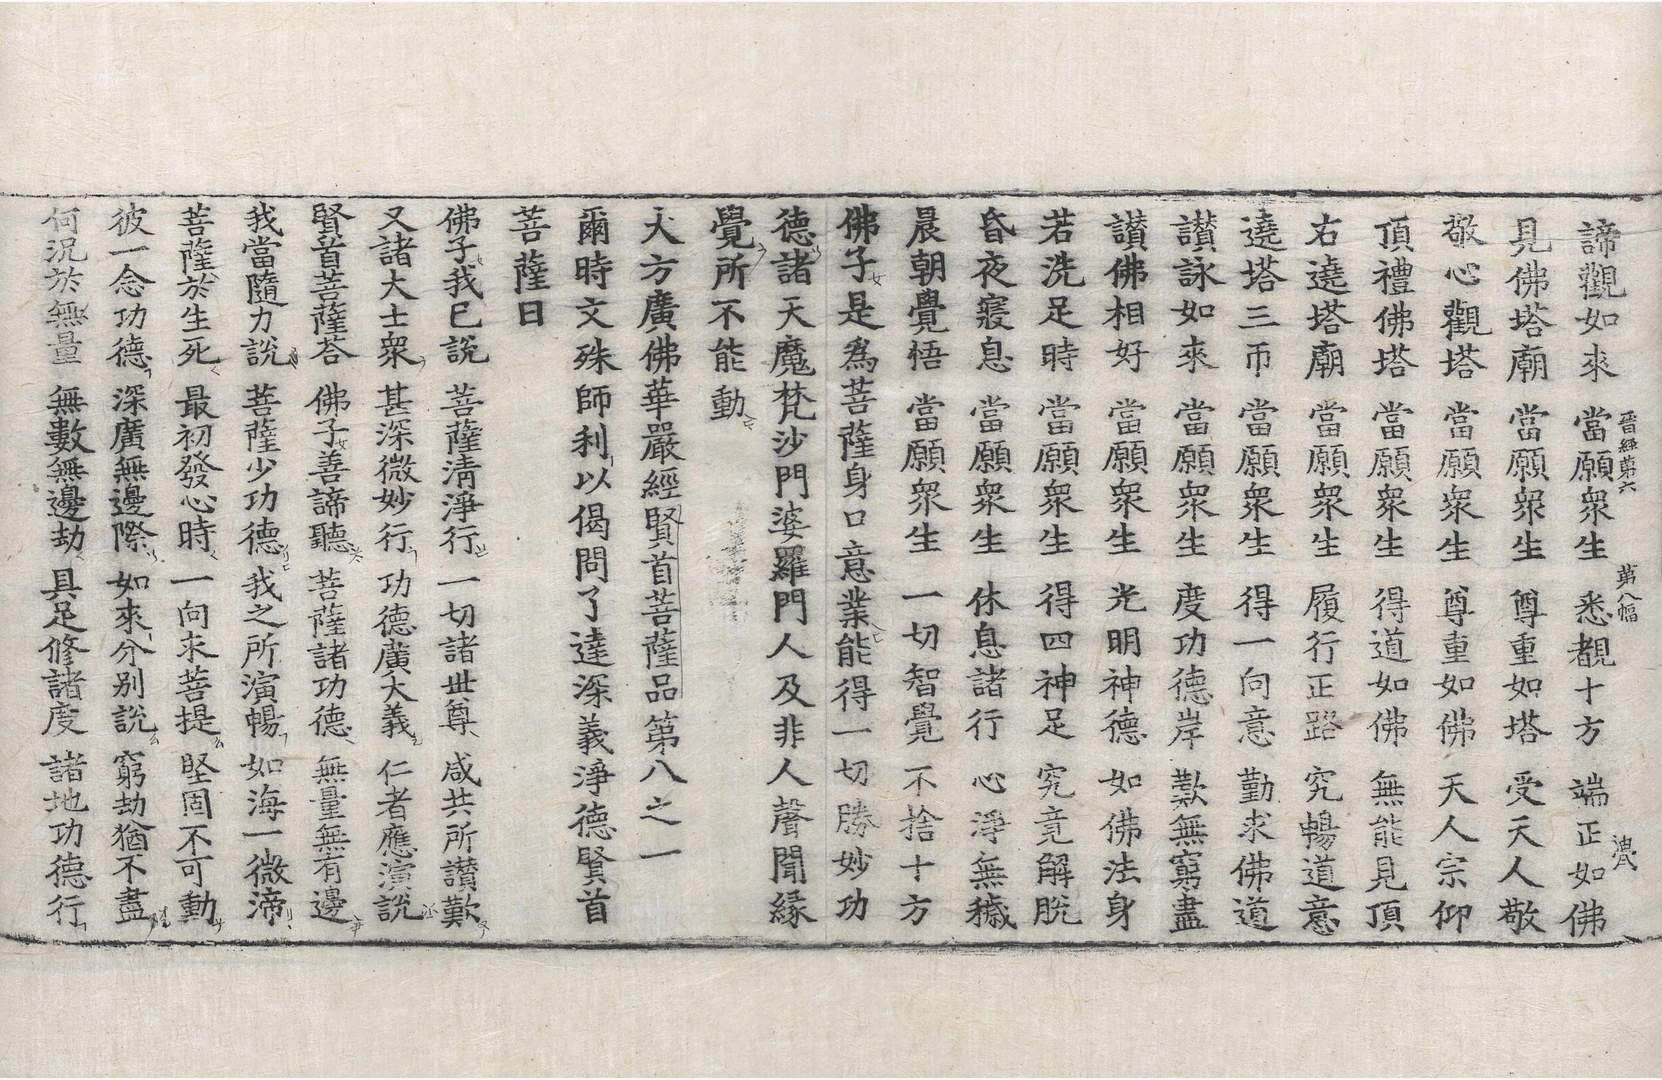 諦觀如來 當願衆生 悉覩十方 端正如佛
晉經第六 第八幅
見佛塔廟 當願衆生 尊重如塔 受天人敬
敬心觀塔 當願衆生 尊重如佛 天人宗仰
頂禮佛塔 當願衆生 得道如佛 無能見頂
右遶塔廟 當願衆生 履行正路 究暢道意
遶塔三帀 當願衆生 得一向意 勤求佛道
讃詠如來 當願衆生 度功德岸 歎無窮盡
讃佛相好 當願衆生 光明神德 如佛法身
若洗足時 當願衆生 得四神足 究竟解脫
昏夜寢息 當願衆生 休息諸行 心淨無穢
晨朝覺悟 當願衆生 一切智覺 不捨十方
佛子是爲菩薩身口意業能得一切勝妙功
德諸天魔梵沙門婆羅門人及非人聲聞緣
覺所不能動
大方廣佛華嚴經賢首菩薩品第八之一
爾時文殊師利以偈問了達深義淨德賢首
菩薩曰
佛子我已說 菩薩清淨行 一切諸世尊 咸共所讃歎
又諸大士衆 甚深微妙行 功德廣大義 仁者應演說
賢首菩薩荅 佛子善諦聽 菩薩諸功德 無量無有邊
我當隨力說 菩薩少功德 我之所演暢 如海一微渧
菩薩於生死 最初發心時 一向求菩提 堅固不可動
彼一念功德 深廣無邊際 如來分別說 窮劫猶不盡
何況於無量 無數無邊劫 具足修諸度 諸地功德行